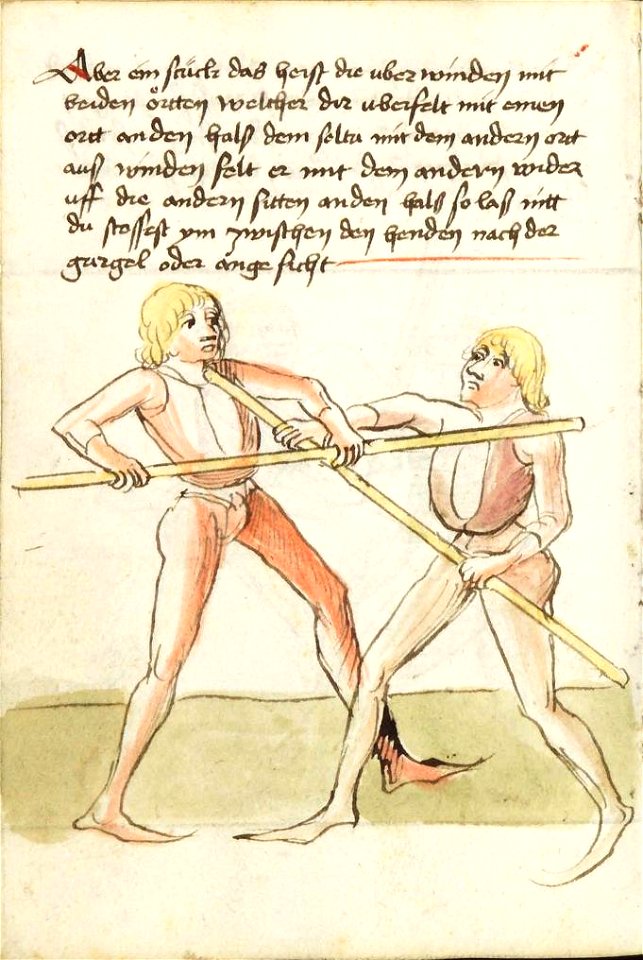 Aber ein stuck das heist die uber winden mit
beiden örtten welcher dir uberfelt mit einen
ortt an den hals dem soltu mit dem andern ort
aus winden felt er mit dem andern wider
uff die andern sitten an den hals so las nitt
du stossest ym zwischen den henden nach der
gurgel oder ange sicht